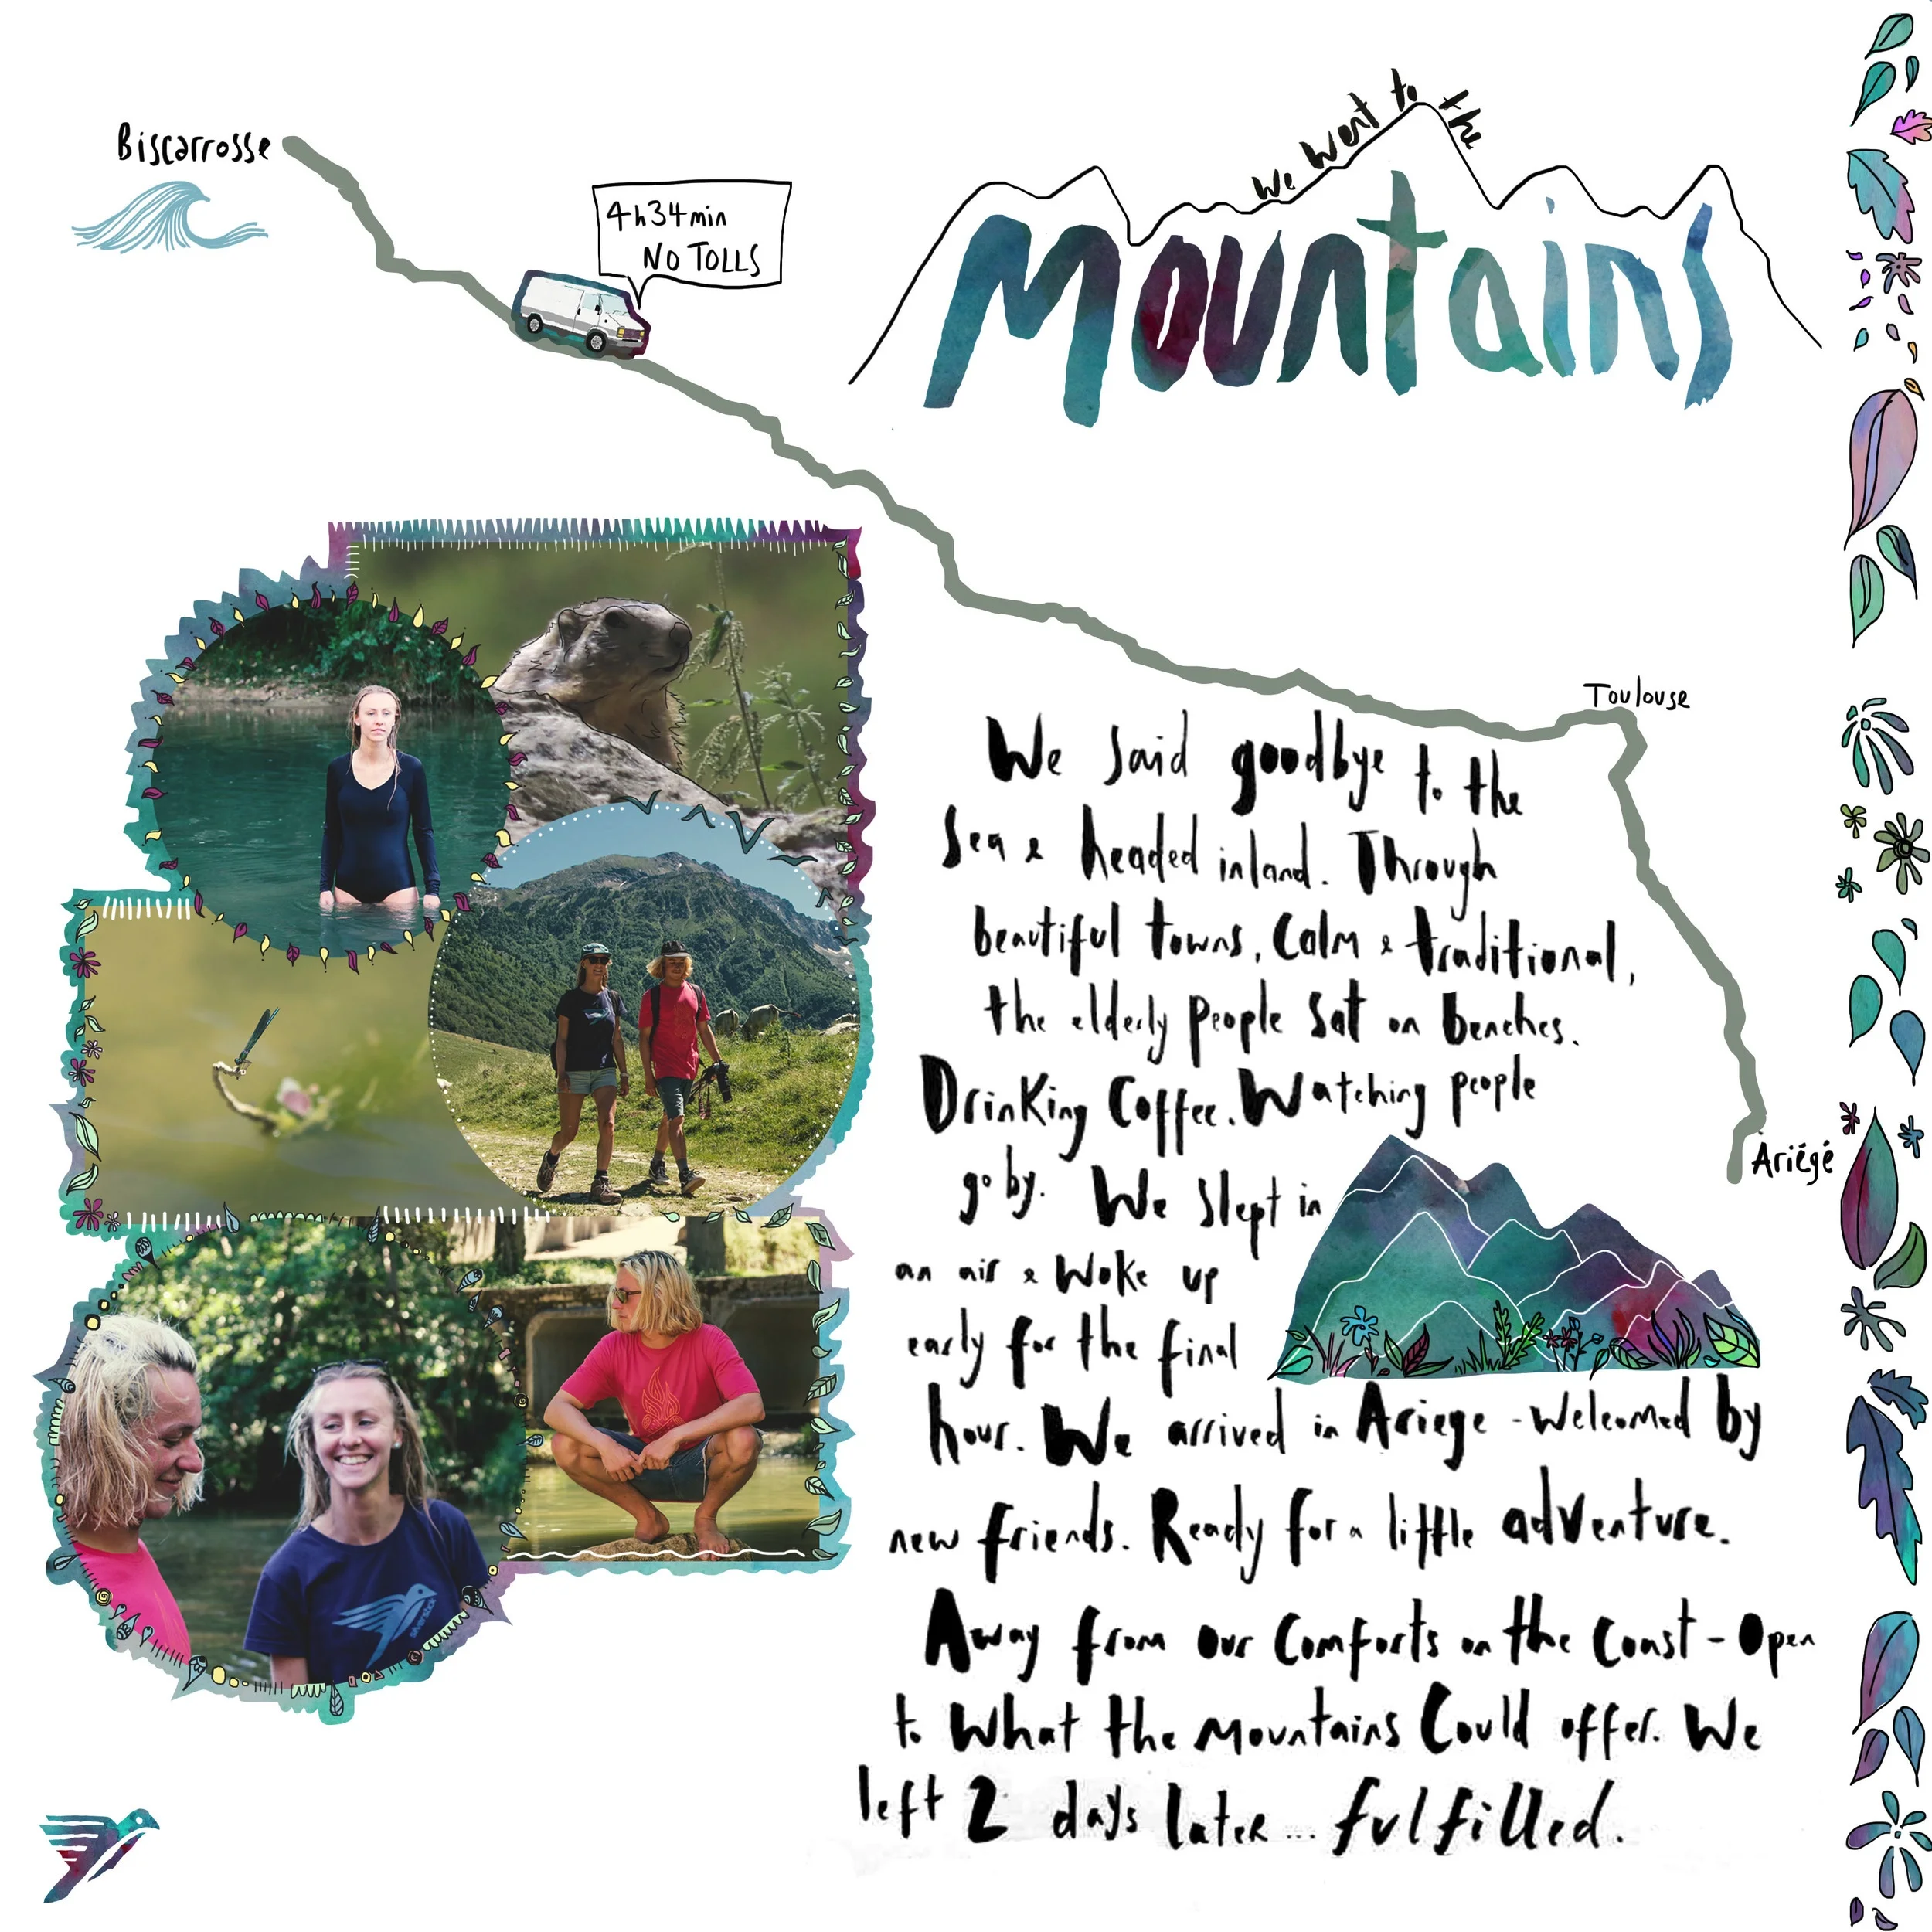 Biscarrosse
4h34min
NO TOLLS
We went to the
Mountains
Toulouse
Ariégé
We said goodbye to the
Sea & headed inland. Through
beautiful towns, Calm & traditional,
the elderly people Sat on benches.
Drinking Coffee. Watching people
go by. We Slept in
an air & Woke up
early for the final
hour. We arrived in Ariege - Welcomed by
new friends. Ready for a little adventure.
Away from our Comforts on the Coast - Open
to What the Mountains Could offer. We
left 2 days later ... fulfilled.
silverstick